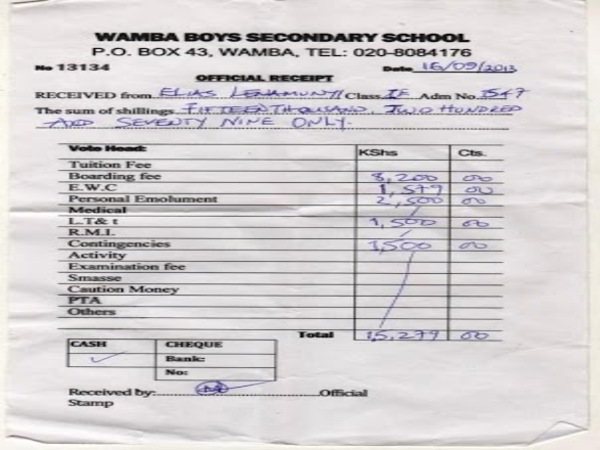 WAMBA BOYS SECONDARY SCHOOL
P.O. BOX 43, WAMBA, TEL: 020-8084176
No 13134 Date 16/09/2013
OFFICIAL RECEIPT
RECEIVED from ELIAS Class IF Adm No. 1547
The sum of shillings FIFTEEN THOUSAND, TWO HUNDRED
AND SEVENTY NINE ONLY.
Vote Head: KShs Cts.
Tuition Fee
Boarding fee 8,200 00
E.W.C 1,579 00
Personal Emolument 2,500 00
Medical
L.T& t 1,500 00
R.M.I.
Contingencies 1,500 00
Activity
Examination fee
Smasse
Caution Money
PTA
Others
Total 15,279 00
CASH CHEQUE
Bank:
No:
Received by: Official
Stamp